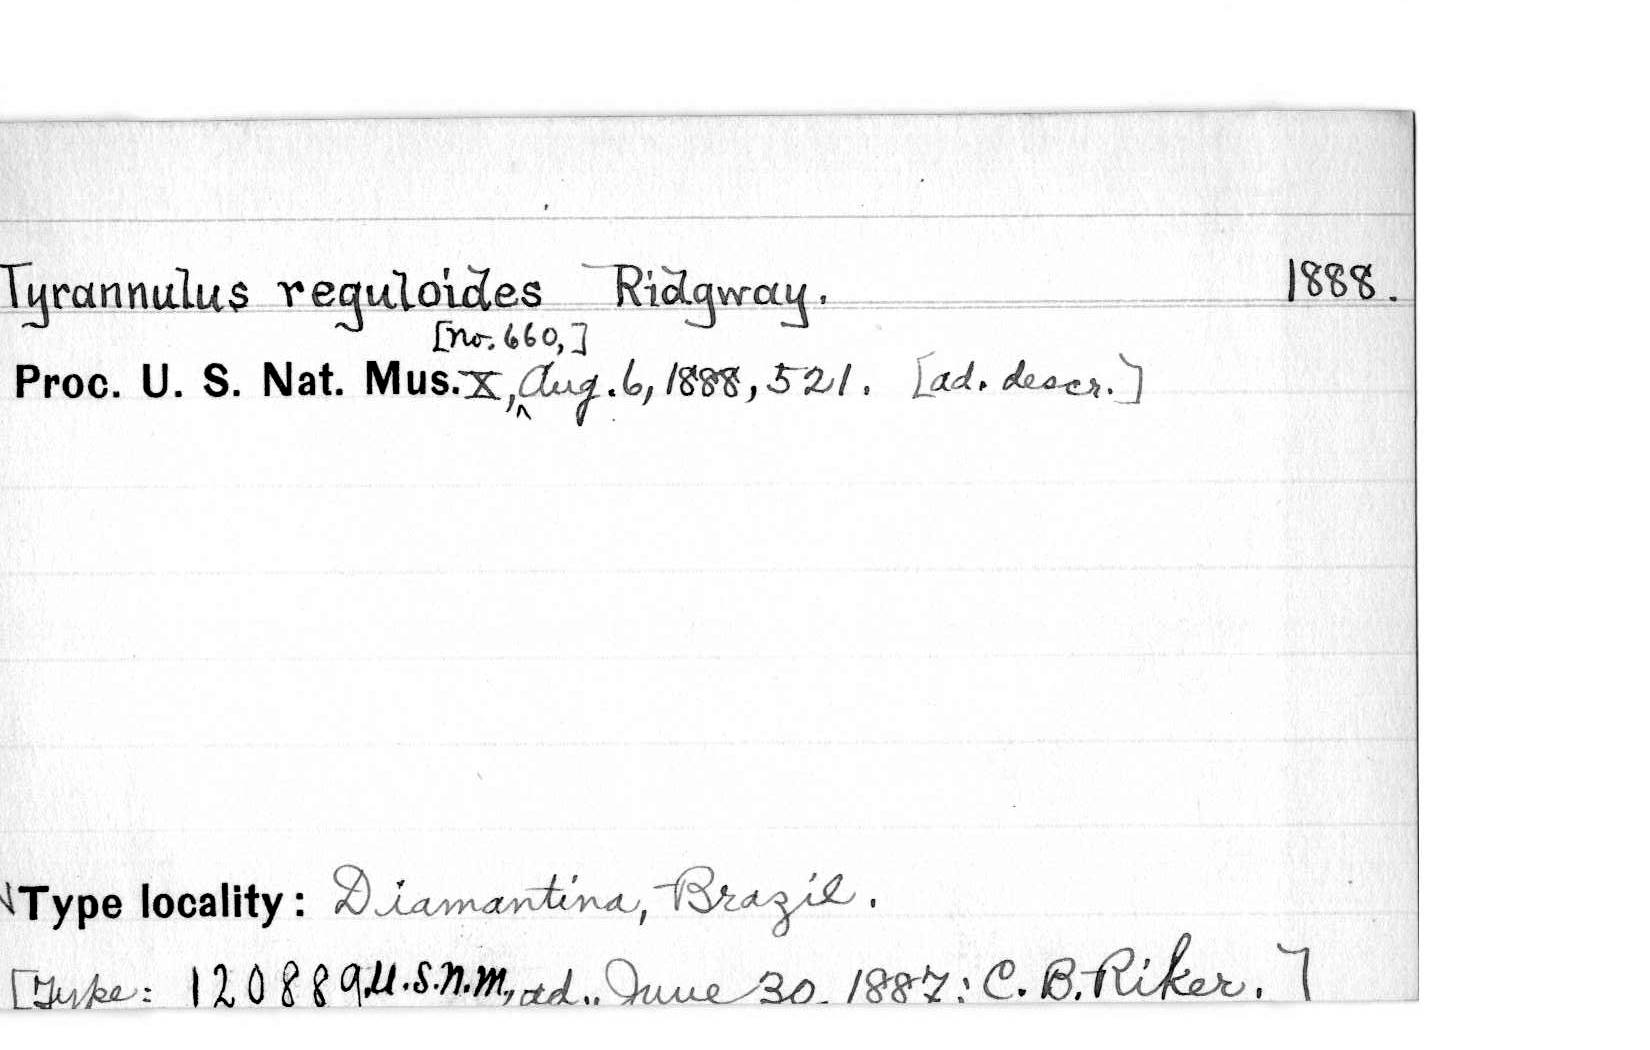 Tyrannulus reguloides Ridgway. 1888.
[no. 660,]
Proc. U. S. Nat. Mus. X,‸ Aug. 6, 1888, 521. [ad. descr.]
Type locality: Diamantina, Brazil.
[Type: 120889 U.S.N.M., ad., June 30, 1887; C. B. Riker.]